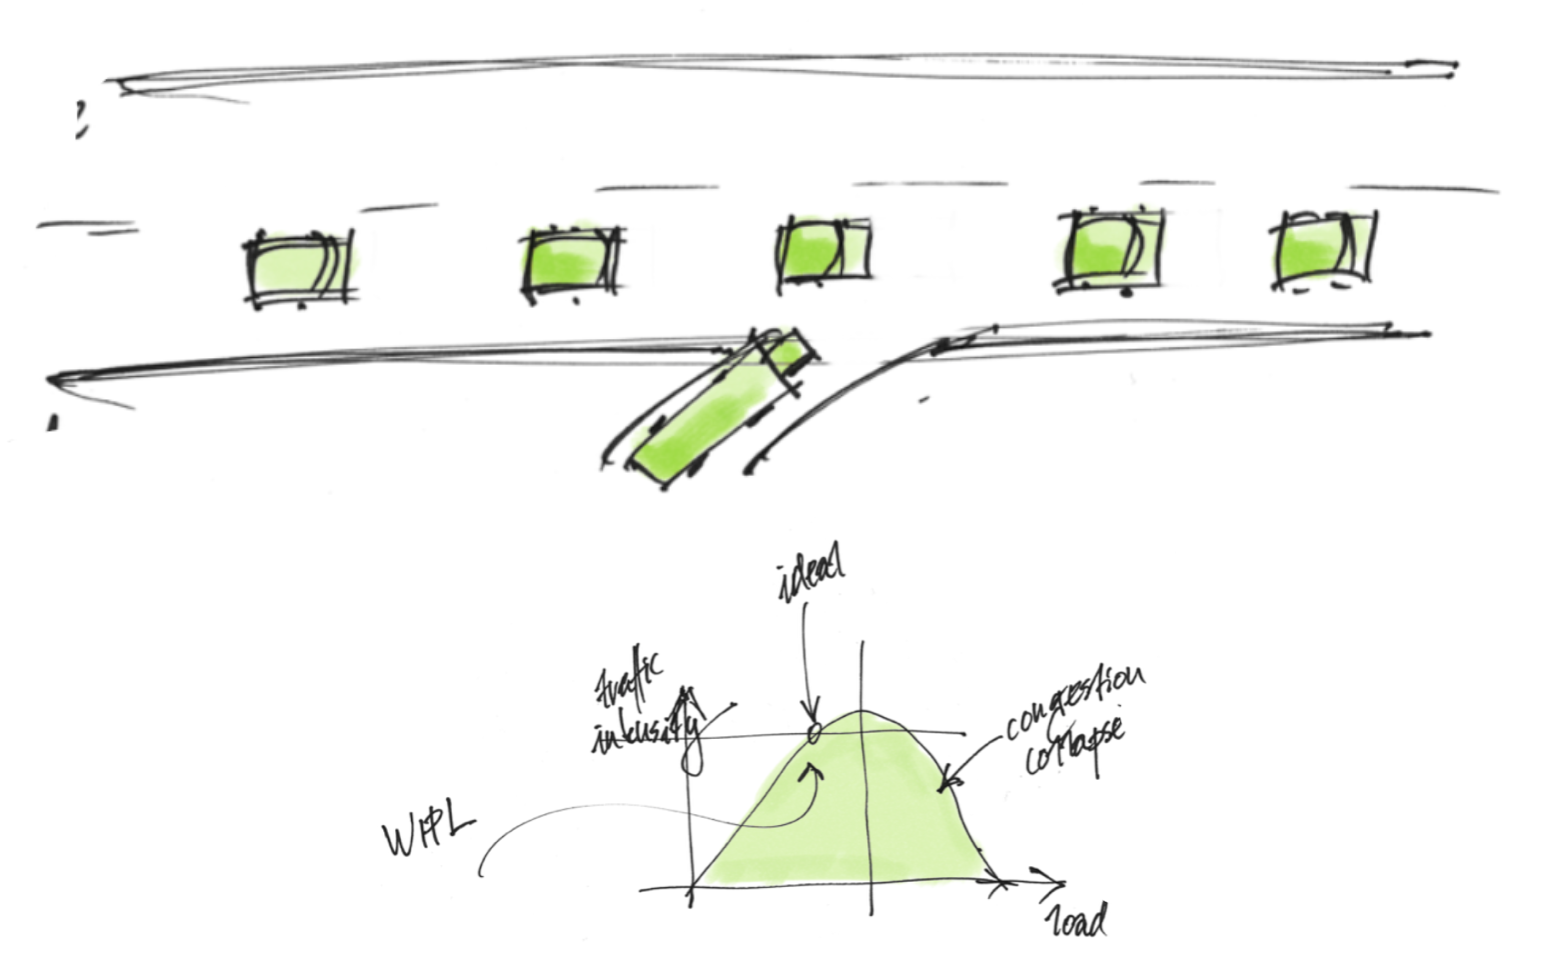 ideal
traffic
intensity
congestion
collapse
WIPL
load